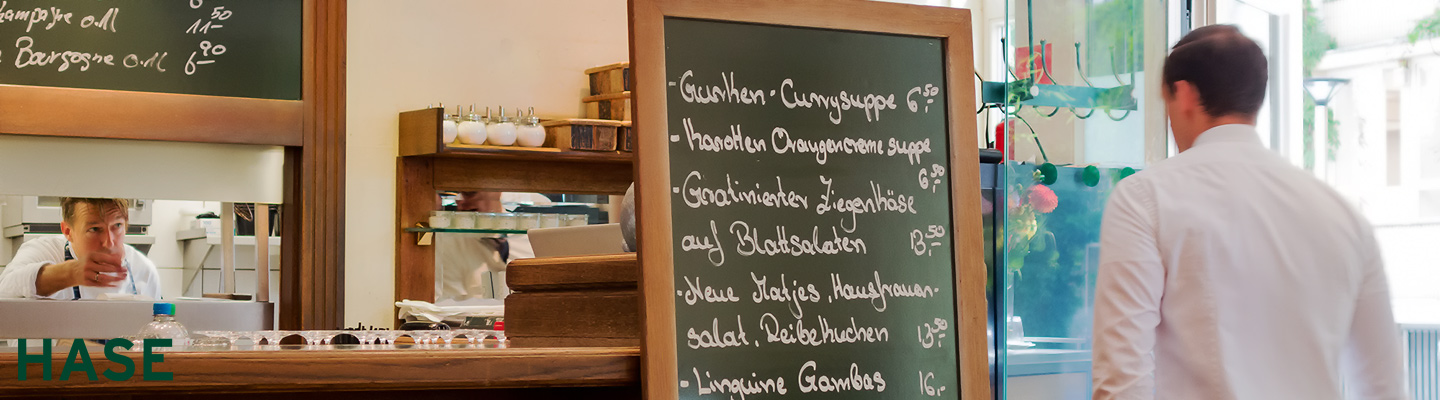 Champagne 0.1l 11.50
Bourgogne 0.1l 6.90
- Gurken-Currysuppe 6.50
- Karotten Orangencreme suppe
6.50
- Gratinierter Ziegenkäse
auf Blattsalaten 13.50
- Neue Matjes, Hausfrauen-
salat, Reibekuchen 13.50
- Linguine Gambas 16,-
HASE